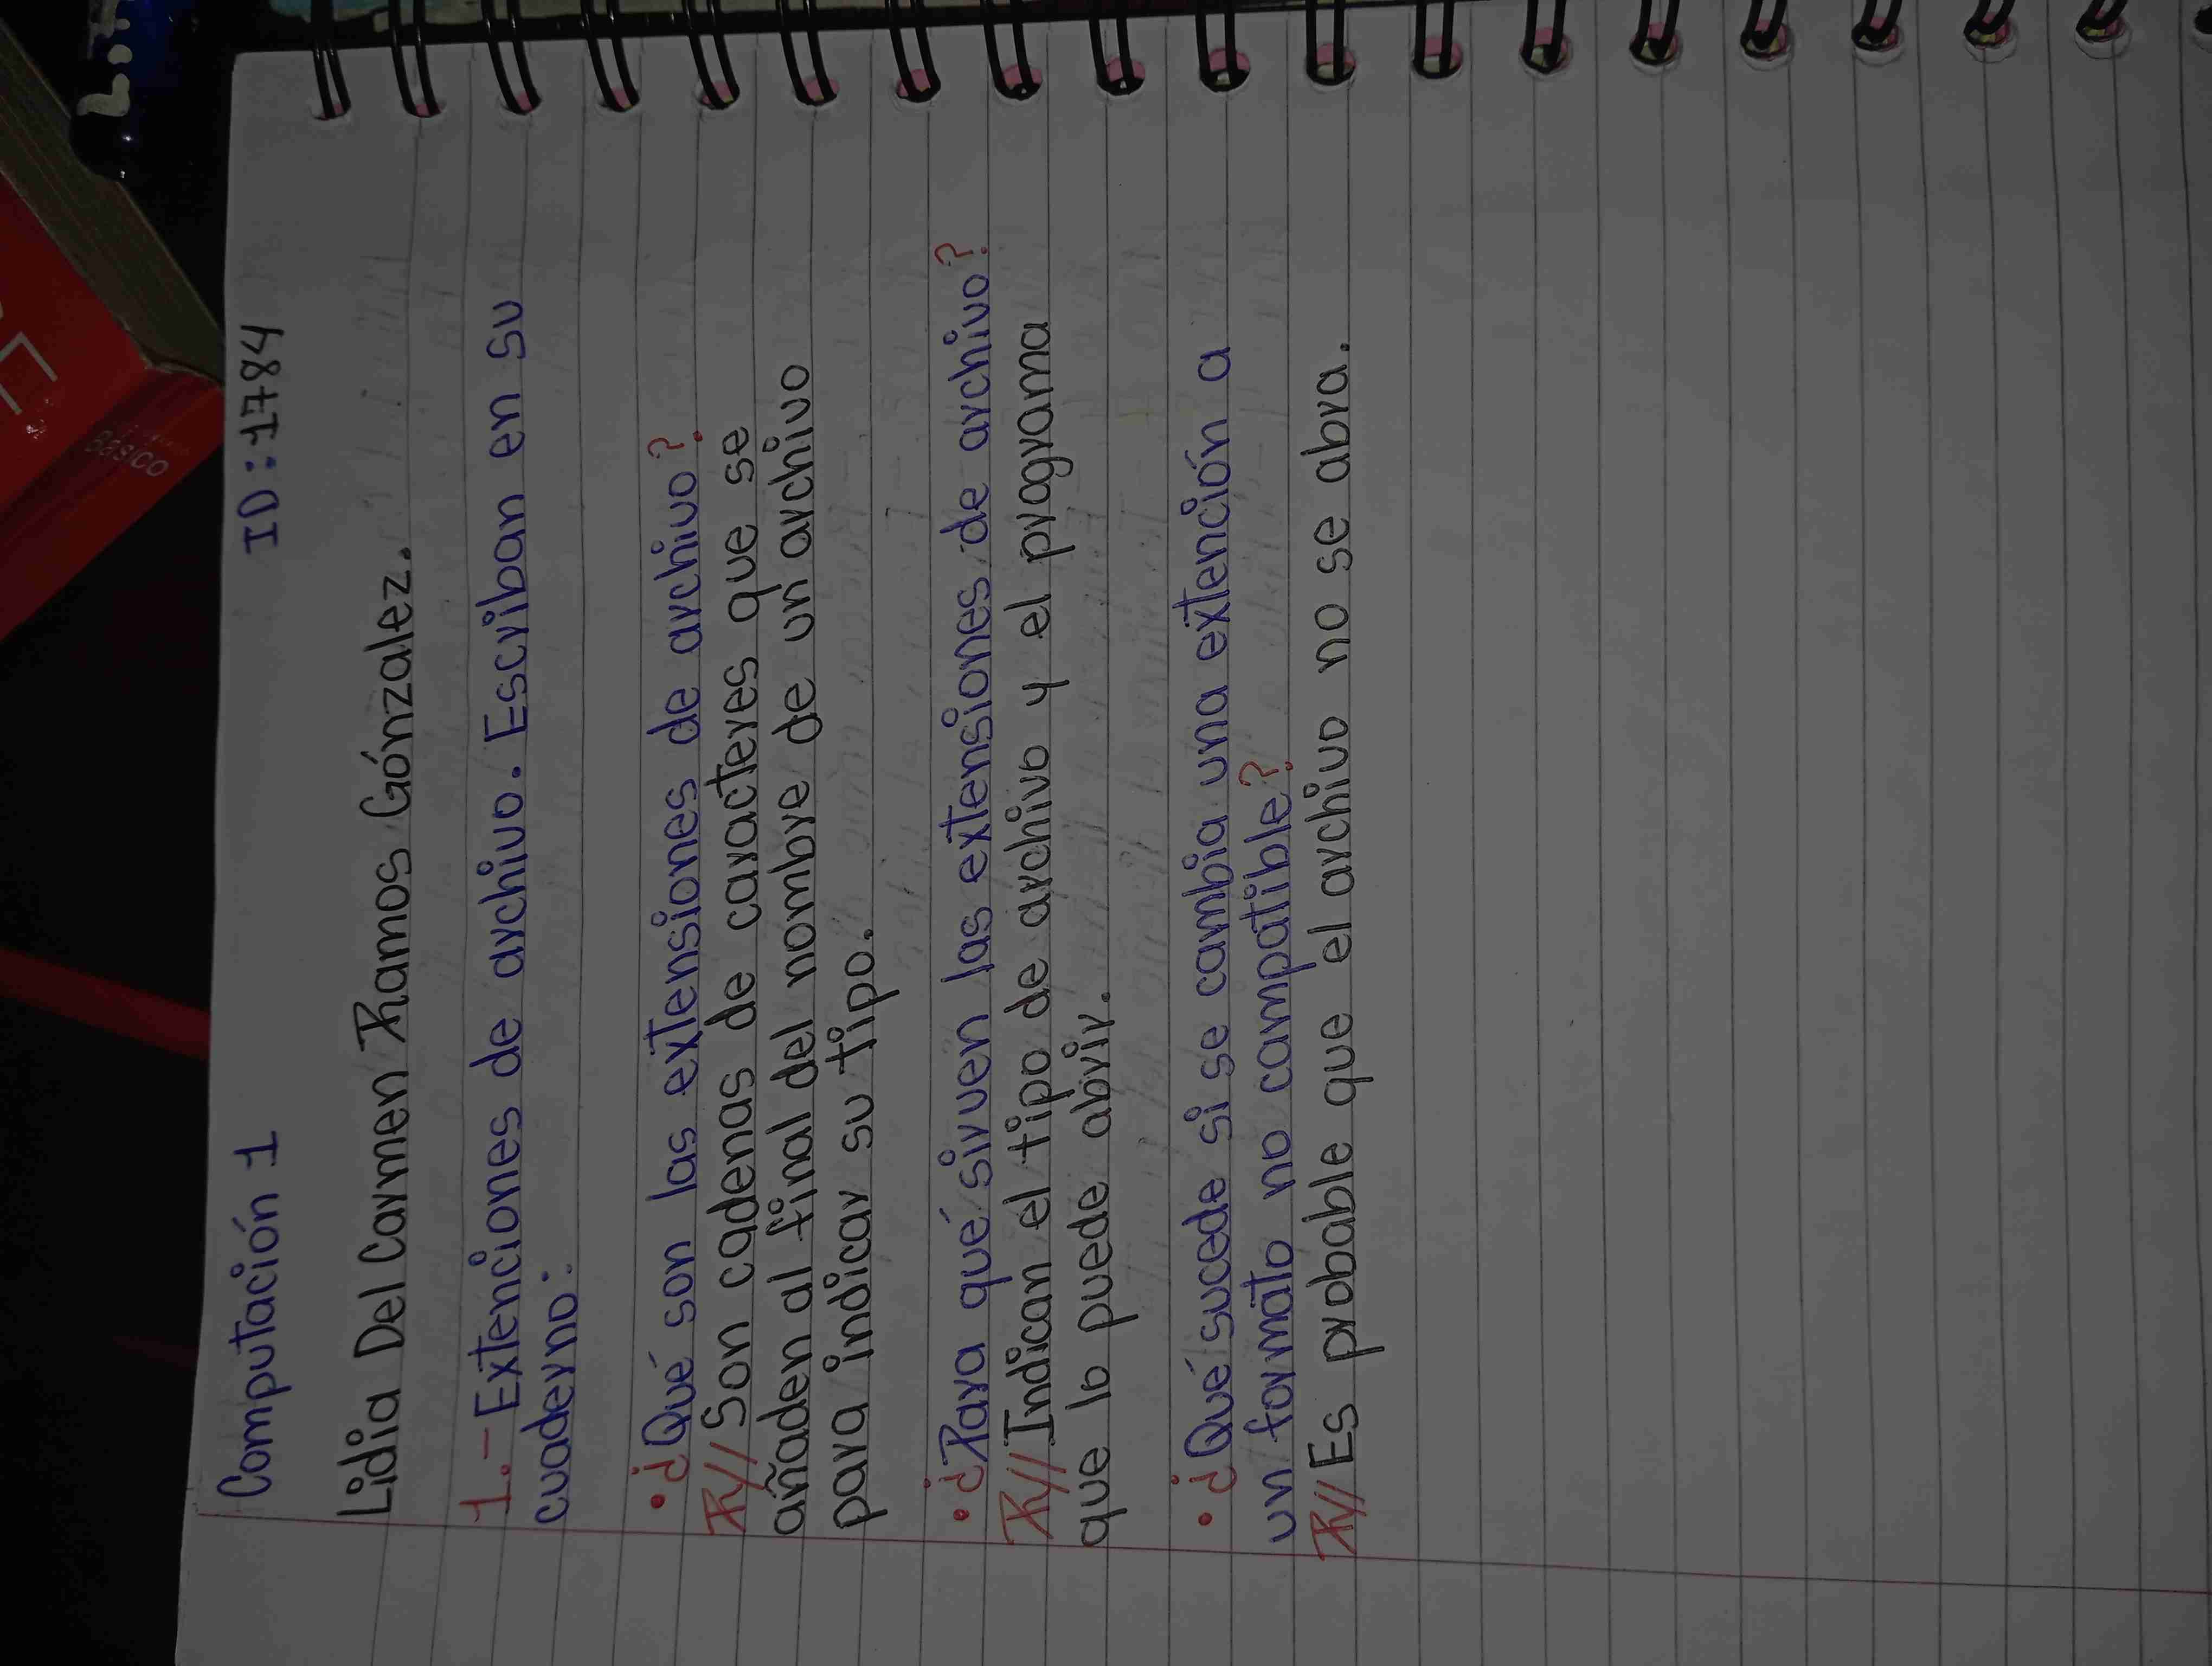 Computación 1 ID:1784
Lidia Del Carmen Ramos Gónzalez.
1.- Extenciones de archivo. Escriban en su
cuaderno:
• ¿Qué son las extensiones de archivo?
R// Son cadenas de caracteres que se
añaden al final del nombre de un archivo
para indicar su tipo.
• ¿Para qué sirven las extensiones de archivo?
R// Indican el tipo de archivo y el programa
que lo puede abrir.
• ¿Qué sucede si se cambia una extención a
un formato no compatible?
R// Es probable que el archivo no se abra.
BáSICO